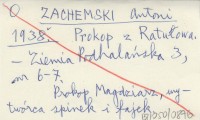 O ZACHEMSKI Antoni
1938. Prokop z Ratułowa.
- Ziemia Podhalańska 3,
nr 6-7.
Prokop Magdziarz, wy-
twórca spinek i fajek.